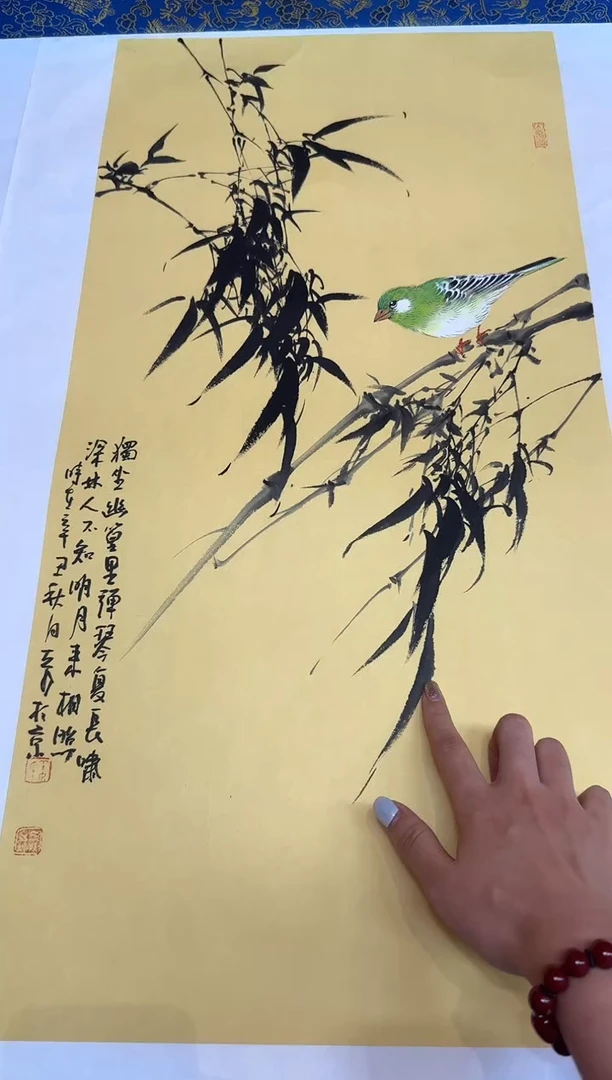 獨坐幽篁里彈琴复長嘯
深林人不知明月来相照
時在辛丑秋月於京